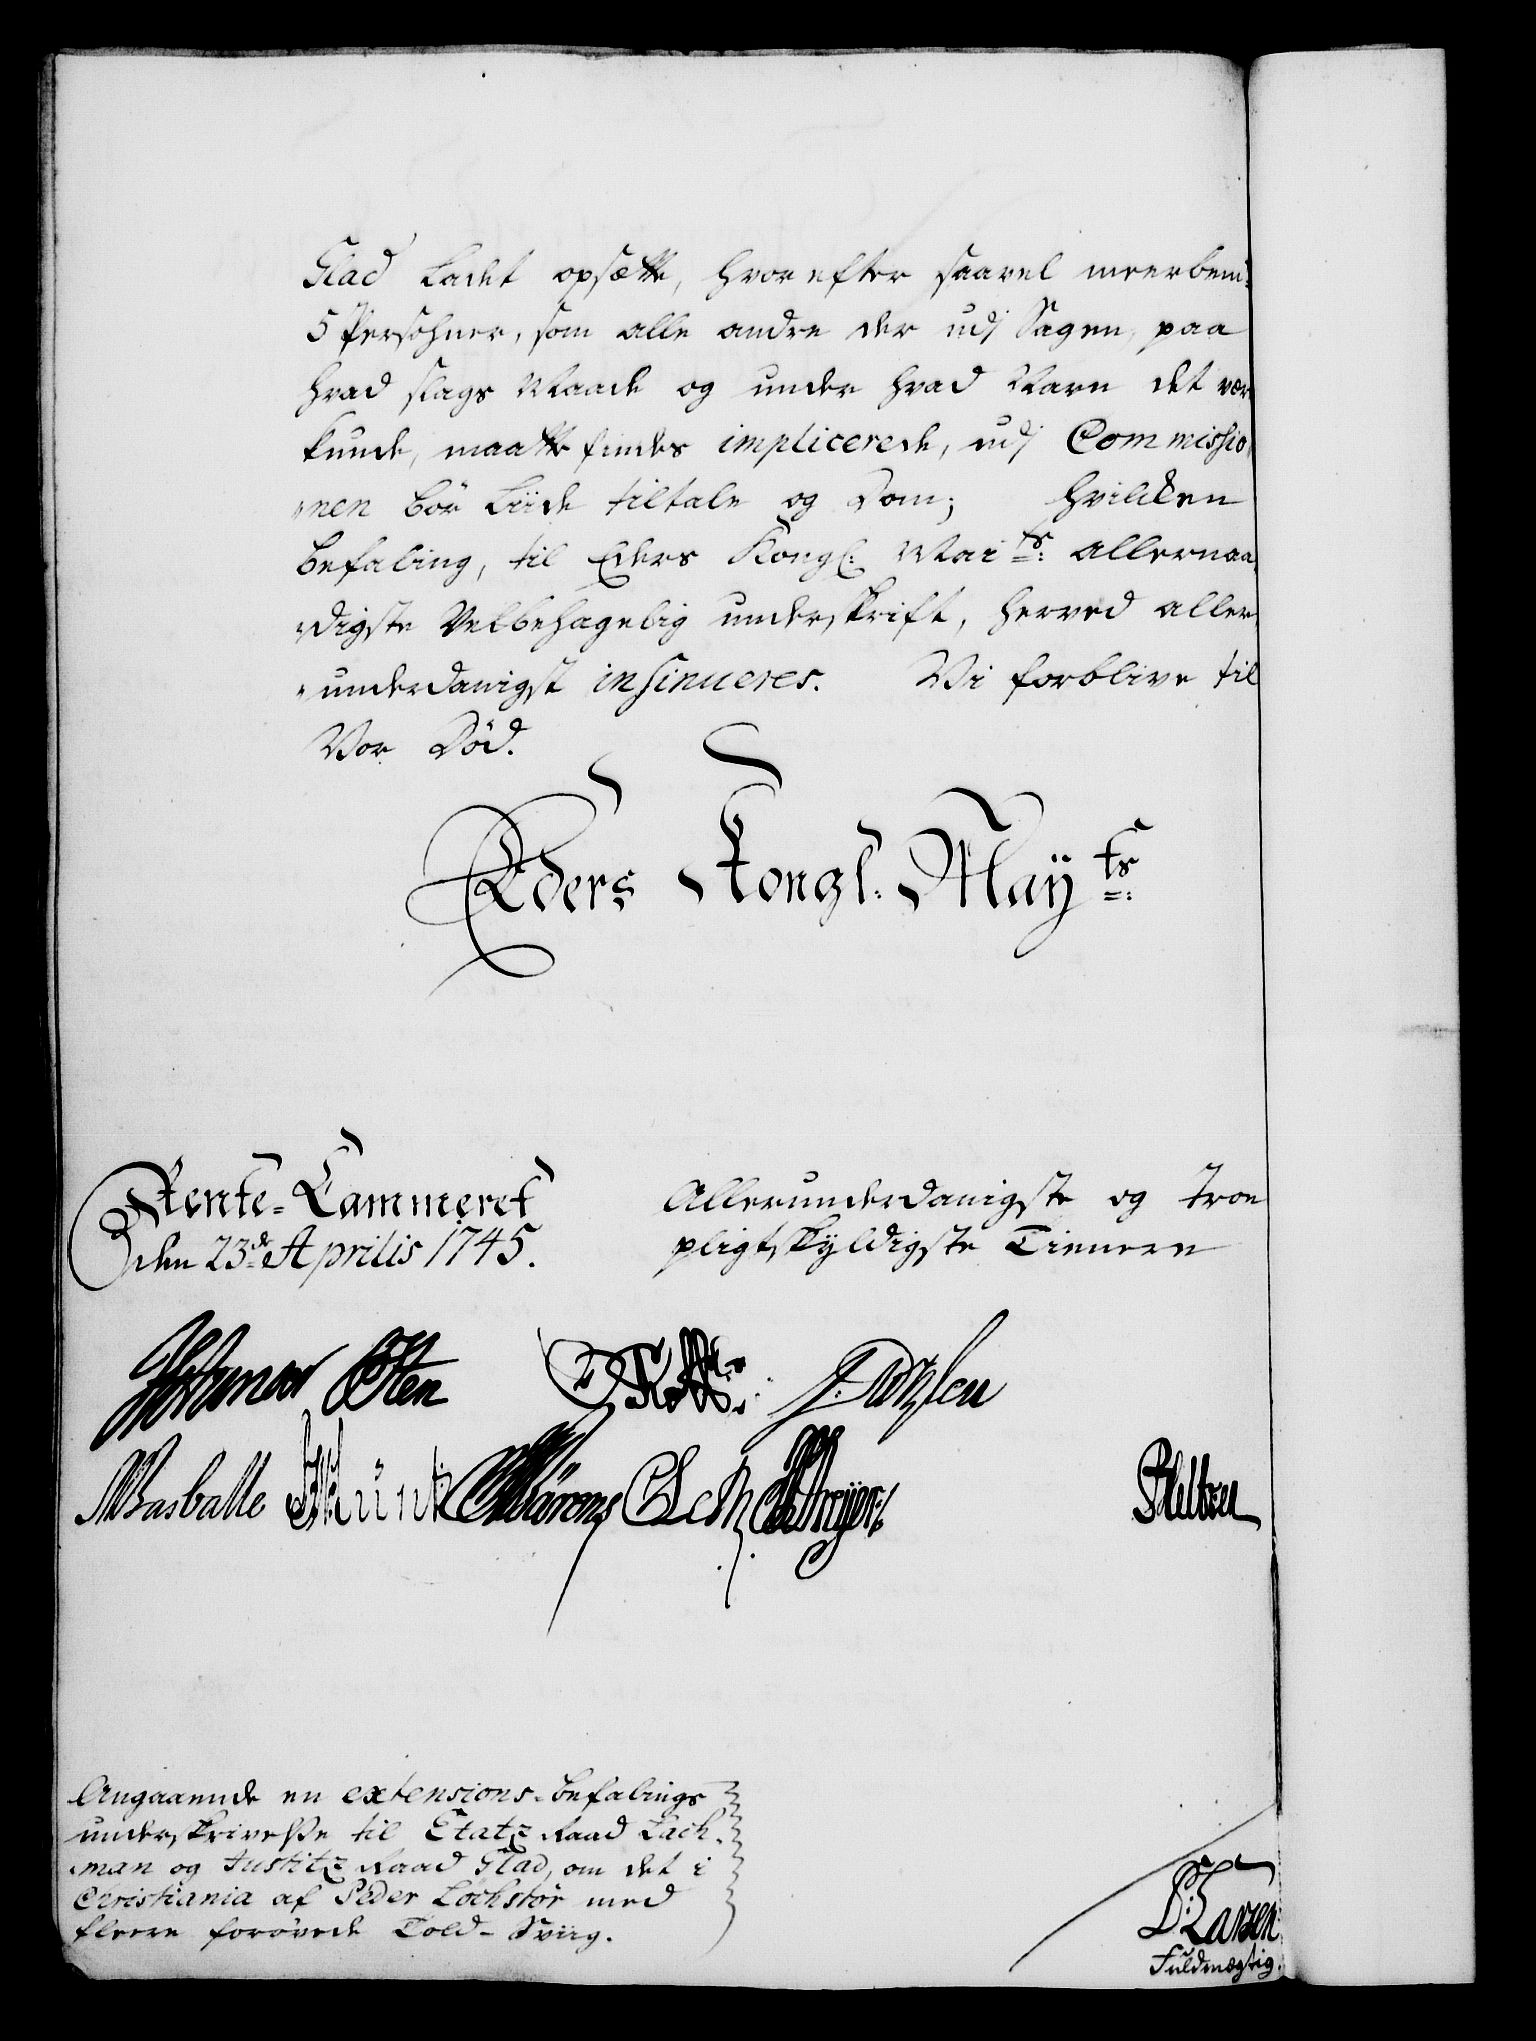 Glad ladet opsætte, hvorefter saavel meerbem:
5 Persohner, som alle andre der udj Sagen, paa
hvad slags Maade og under hvad Navn det være
kunde, maatte findes implicerede, udj Commissio
nen bör liide tiltale og Dom; hvilcken
befaling, til Eders Kongl: Mai ts: allernaa
digste Velbehagelig underskrift, herved aller
underdanigst insinueres. Vi forblive til
Vor Död.
Eders Kongl: Maÿ ts:
Rente-Cammeret
den 23de Aprilis 1745.
Allerunderdanigste og troe
pligtskyldigste Tienere
Angaaende en extensions-befalings
underskrivelse til Etatz Raad Lach
man og Justitz Raad Glad, om det i
Christiania af Peder Löchstör med
fleere forövede Told-Sviig.
Larsen
Fuldmægtig.